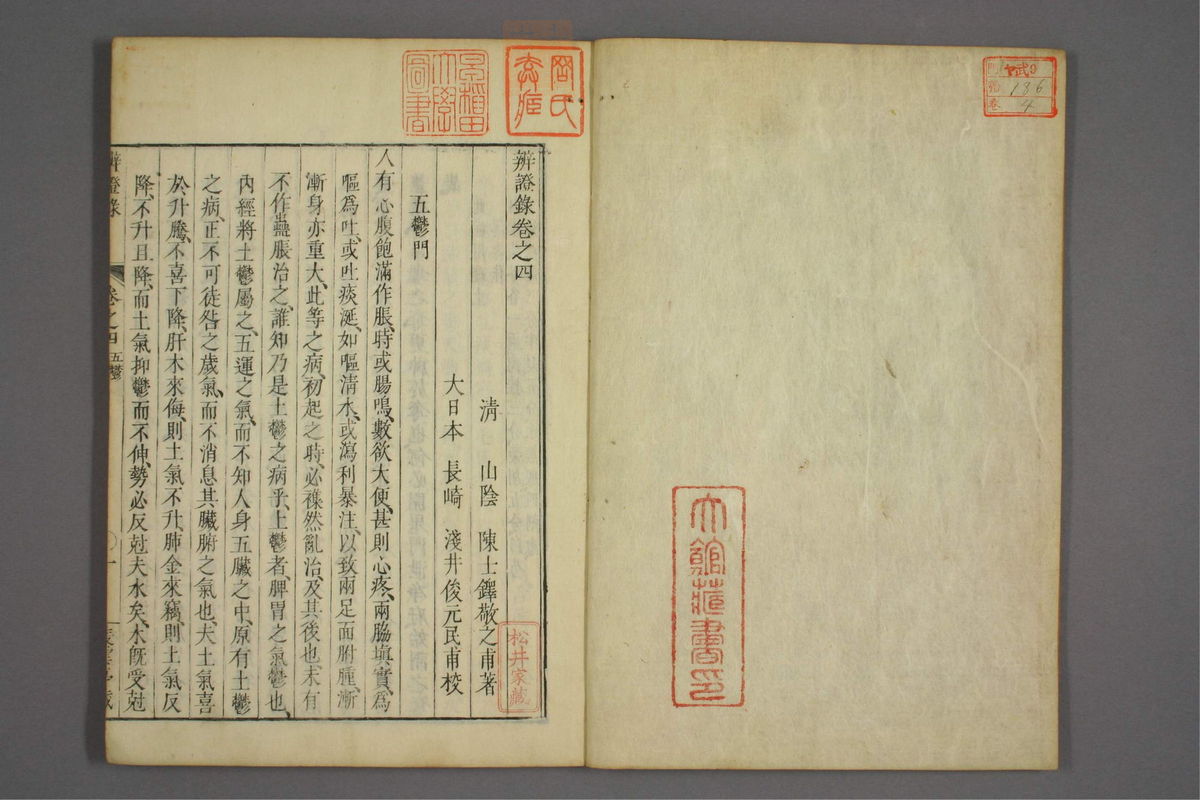 武
186
4
大館莊書印
早稲田大學圖書
辨證錄卷之四
清　山陰　陳士鐸敬之甫著
大日本　長崎　淺井俊元民甫校
松井家藏
五鬱門
人有心腹飽滿作脹、時或腸鳴、數欲大便、甚則心疼、兩脇填實、爲
嘔爲吐、或吐痰涎、如嘔清水、或瀉利暴注、以致兩足面胕腫、漸
漸身亦重大、此等之病、初起之時、必襍然亂治、及其後也、未有
不作蠱脹治之、誰知乃是土鬱之病乎、土鬱者、脾胃之氣鬱也、
內經將土鬱屬之、五運之氣、而不知人身五臟之中、原有土鬱
之病、正不可徒咎之歲氣、而不消息其臟腑之氣也、夫土氣喜
於升騰、不喜下降、肝木來侮、則土氣不升、肺金來竊、則土氣反
降、不升且降、而土氣抑鬱而不伸、勢必反尅夫水矣、水既受尅
辨證錄
卷之四
五鬱
一